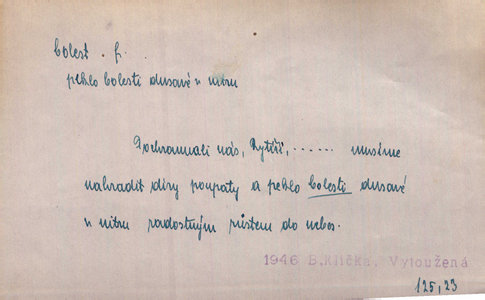 bolest f.
peklo bolesti dusavé v nitru
Pochramali nás, Rytíři, ...... musíme
nahradit díry poupaty a peklo bolesti dusavé
v nitru radostným růstem do nebes.
1946 B.Klička, Vytoužená
125,23